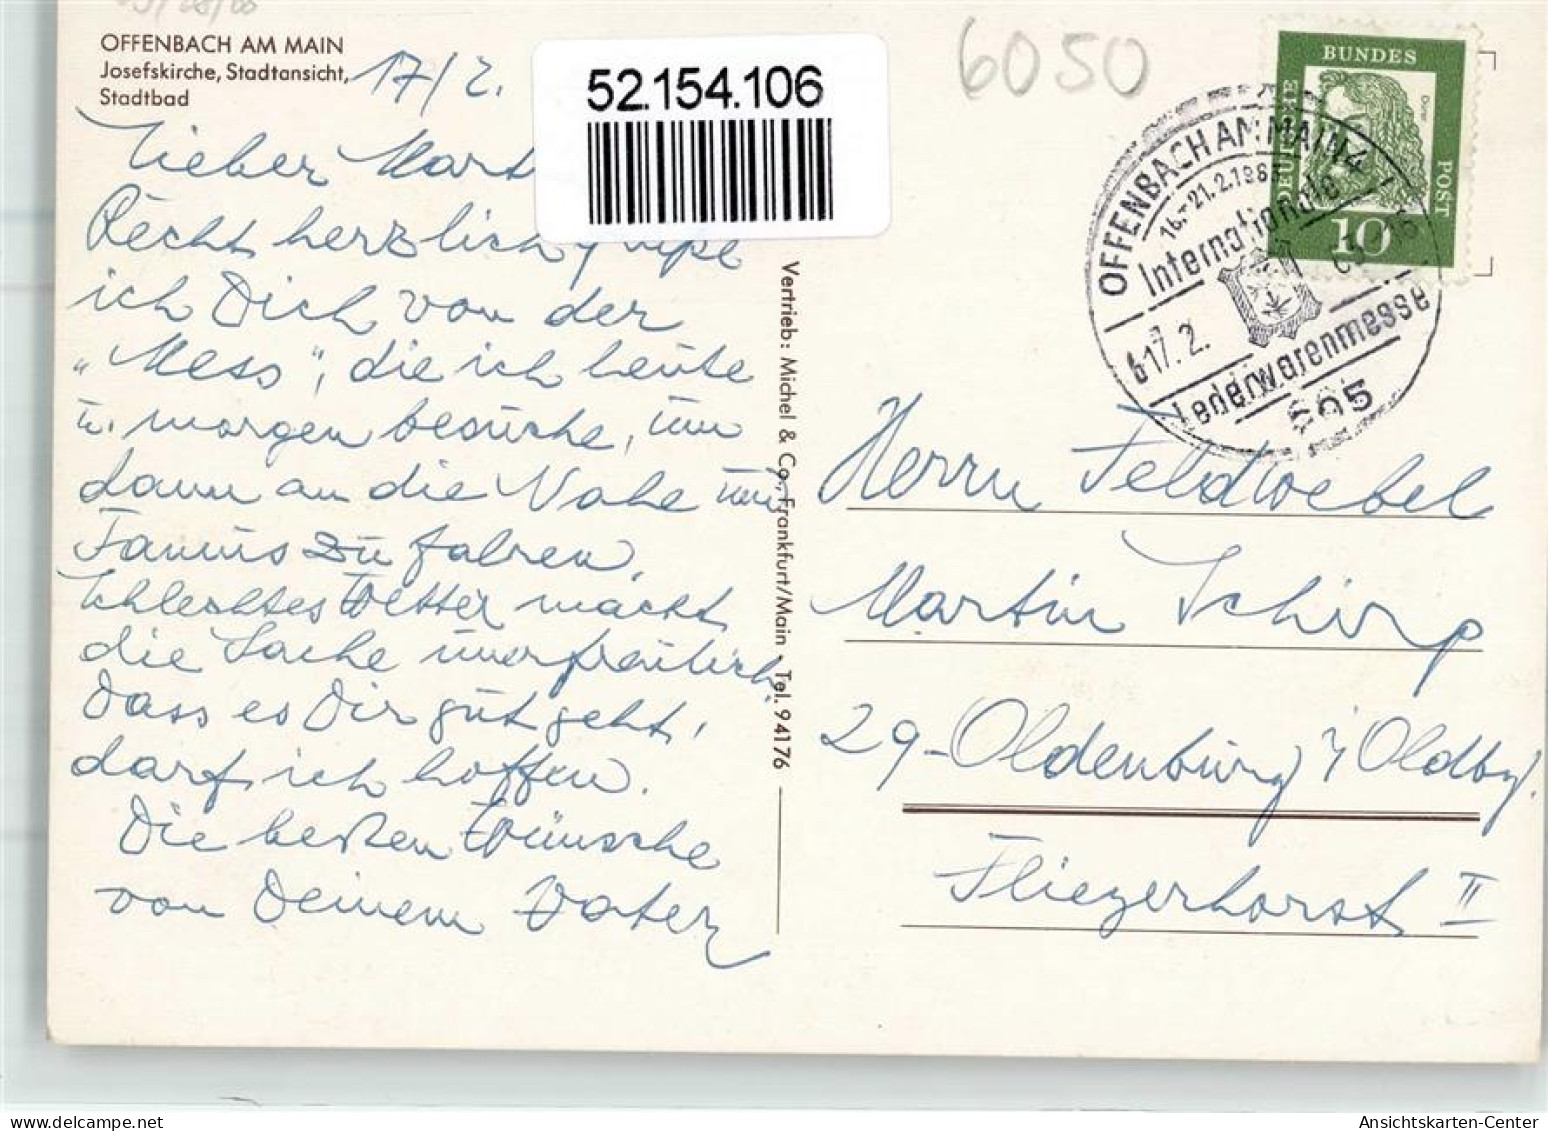 OFFENBACH AM MAIN
Josefskirche, Stadtansicht,
Stadtbad
17/2.
52.154.106
6050
Lieber
Recht herzlich grüße
ich Dich von der
„Mess", die ich heute
u. morgen besuche, um
dann an die Nahe und
Taunus zu fahren.
Schlechtes Wetter macht
die Sache unerfreulich.
Dass es Dir gut geht,
darf ich hoffen.
Die besten Wünsche
von Deinem Vater
Vertrieb: Michel & Co., Frankfurt/Main • Tel. 94176
DEUTSCHE BUNDESPOST
Dürer
10
OFFENBACH AM MAIN 4
16.-21.2.196
Internationale
17.2.
Lederwarenmesse
605
Herrn Feldwebel
Martin Schirp
29-Oldenburg i/Oldbg.
Fliegerhorst II
Ansichtskarten-Center